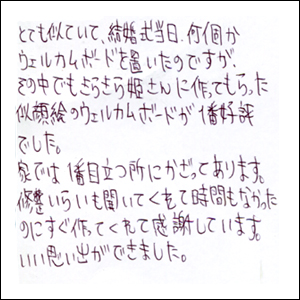 とても似ていて、結婚式当日、何個か
ウェルカムボードを置いたのですが、
その中でもきらきら姫さんに作ってもらった
似顔絵のウェルカムボードが1番好評
でした。
家では1番目立つ所にかざってあります。
修整いらいも聞いてくれて時間もなかった
のにすぐ作ってくれて感謝しています。
いい思い出ができました。